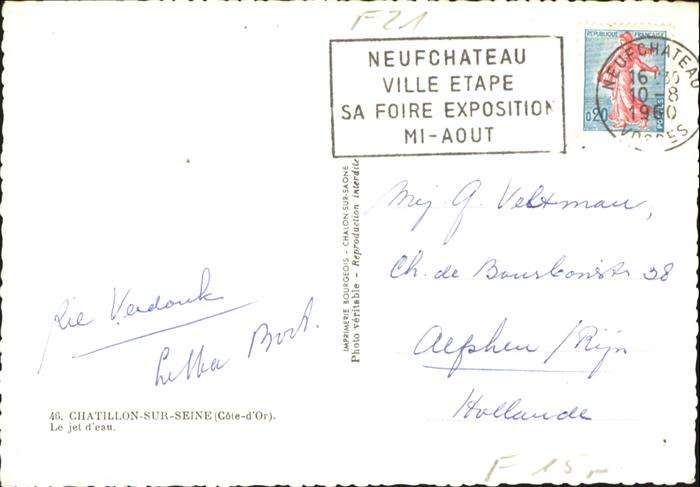 F 21
NEUFCHATEAU
VILLE ETAPE
SA FOIRE EXPOSITION
MI-AOUT
REPUBLIQUE FRANÇAISE
0,20
POSTES
NEUFCHATEAU
16-30
10-8
1960
VOSGES
IMPRIMERIE BOURGEOIS - CHALON-SUR-SAONE
Photo véritable - Reproduction interdite
Mej. G. Veltman,
Ch. de Bourbonstr 38
Alphen / Rijn
Hollande
Rie Verdonk
Bort.
46. CHATILLON-SUR-SEINE (Côte-d'Or).
Le jet d'eau.
F 15,-